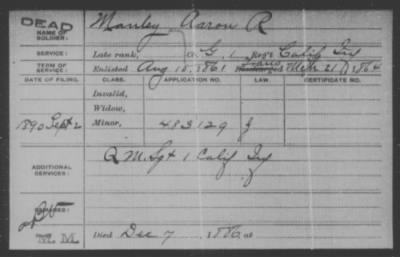 DEAD
NAME OF SOLDIER: Manley Aaron R
SERVICE: Late rank, Co. G, 1 Reg't Calif Inf
TERM OF SERVICE: Enlisted Aug 15, 1861 Discharged Mch 21, 1864
DATE OF FILING. CLASS. APPLICATION NO. LAW. CERTIFICATE NO.
Invalid,
Widow,
1890 Sept 2 Minor, 483129
ADDITIONAL SERVICES: Q M. Sgt 1 Calif Inf
REMARKS:
M. M. Died Dec 7, 1880